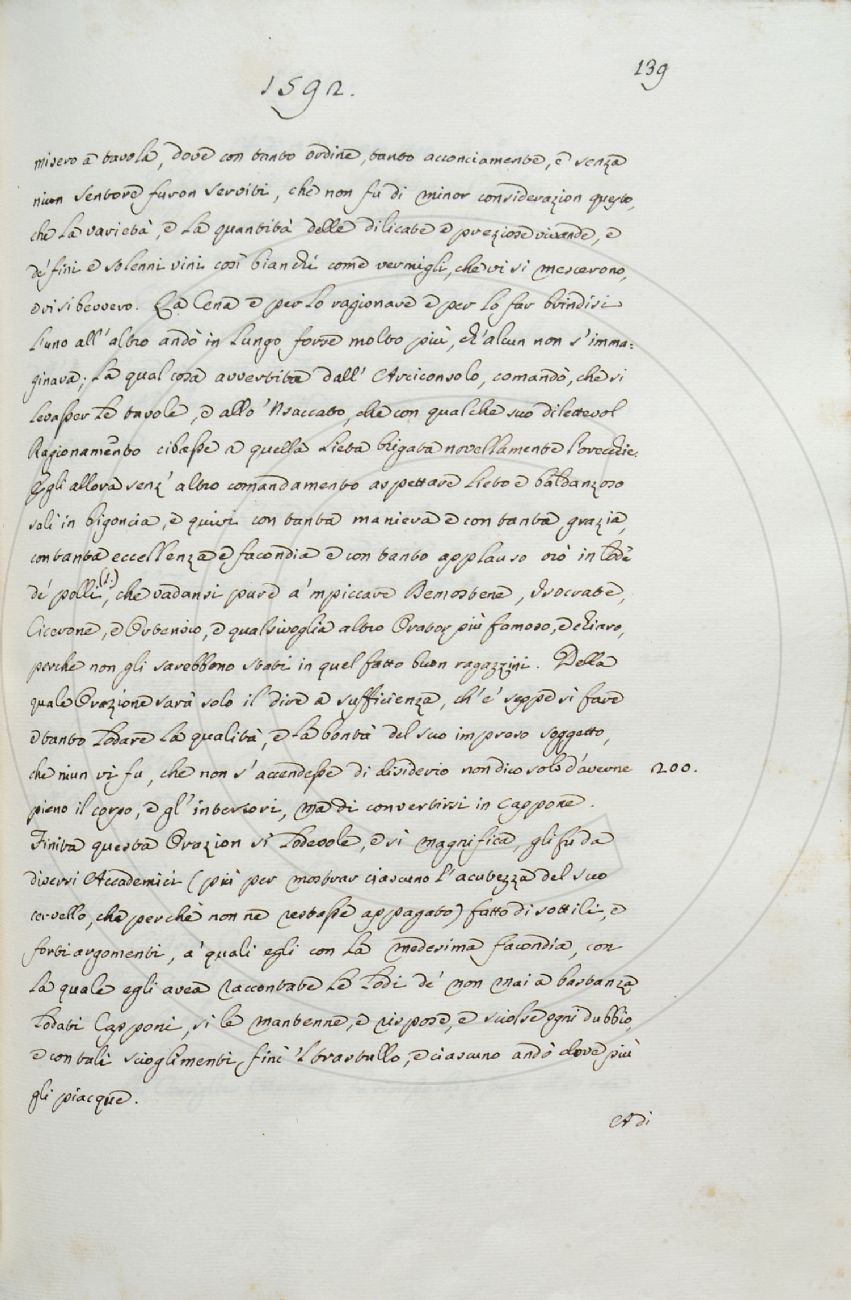 139
1592.
misero a tavola, dove con tanto ordine, tanto acconciamente, e senza
niun sentore furon serviti, che non fu di minor considerazion questo,
che la varietà, e la quantità delle dilicate e preziose vivande, e
de' fini e solenni vini così bianchi come vermigli, che vi si mescerono,
e vi si bevvero. La Cena e per lo ragionare e per lo far brindisi
l'uno all'altro andò in lungo forse molto più, ch'alcun non s'imma=
ginava; la qual cosa avvertita dall' Arciconsolo, comandò, che si
levasser le tavole, e allo 'Nsaccato, che con qualche suo dilettevol
Ragionamento cibasse a quella lieta brigata novellamente l'orecchie.
Egli allora senz' altro comandamento aspettare lieto e baldanzoso
salì in bigoncia, e quivi con tanta maniera e con tanta grazia,
con tanta eccellenza e facondia e con tanto applauso orò in lode
de' polli (s.), che vadansi pure a 'mpiccare Demostene, Isocrate,
Cicerone, e Ortensio, e qualsivoglia altro Orator più famoso, e chiaro,
perche non gli sarebbono stati in quel fatto buon ragazzini. Della
quale Orazione sarà solo il dire a sufficienza, ch' e' seppe sì fare
e tanto lodare la qualità, e la bontà del suo impreso soggetto,
che niun vi fu, che non s'accendesse di disiderio non dico solo d'averne 200.
pieno il corpo, e gl' interiori, ma di convertirsi in Cappone.
Finita questa Orazion sì lodevole, e sì magnifica, gli fu da
diversi Accademici (più per mostrar ciascuno l'acutezza del suo
cervello, che perchè non ne restasse appagato) fatto di sottili, e
forti argomenti, a' quali egli con la medesima facondia, con
la quale egli avea raccontate le lodi de' non mai a bastanza
lodati Capponi, si le mantenne, e rispose, e sciolse ogni dubbio,
e con tali scioglimenti finì 'l trastullo, e ciascuno andò dove più
gli piacque.
A di